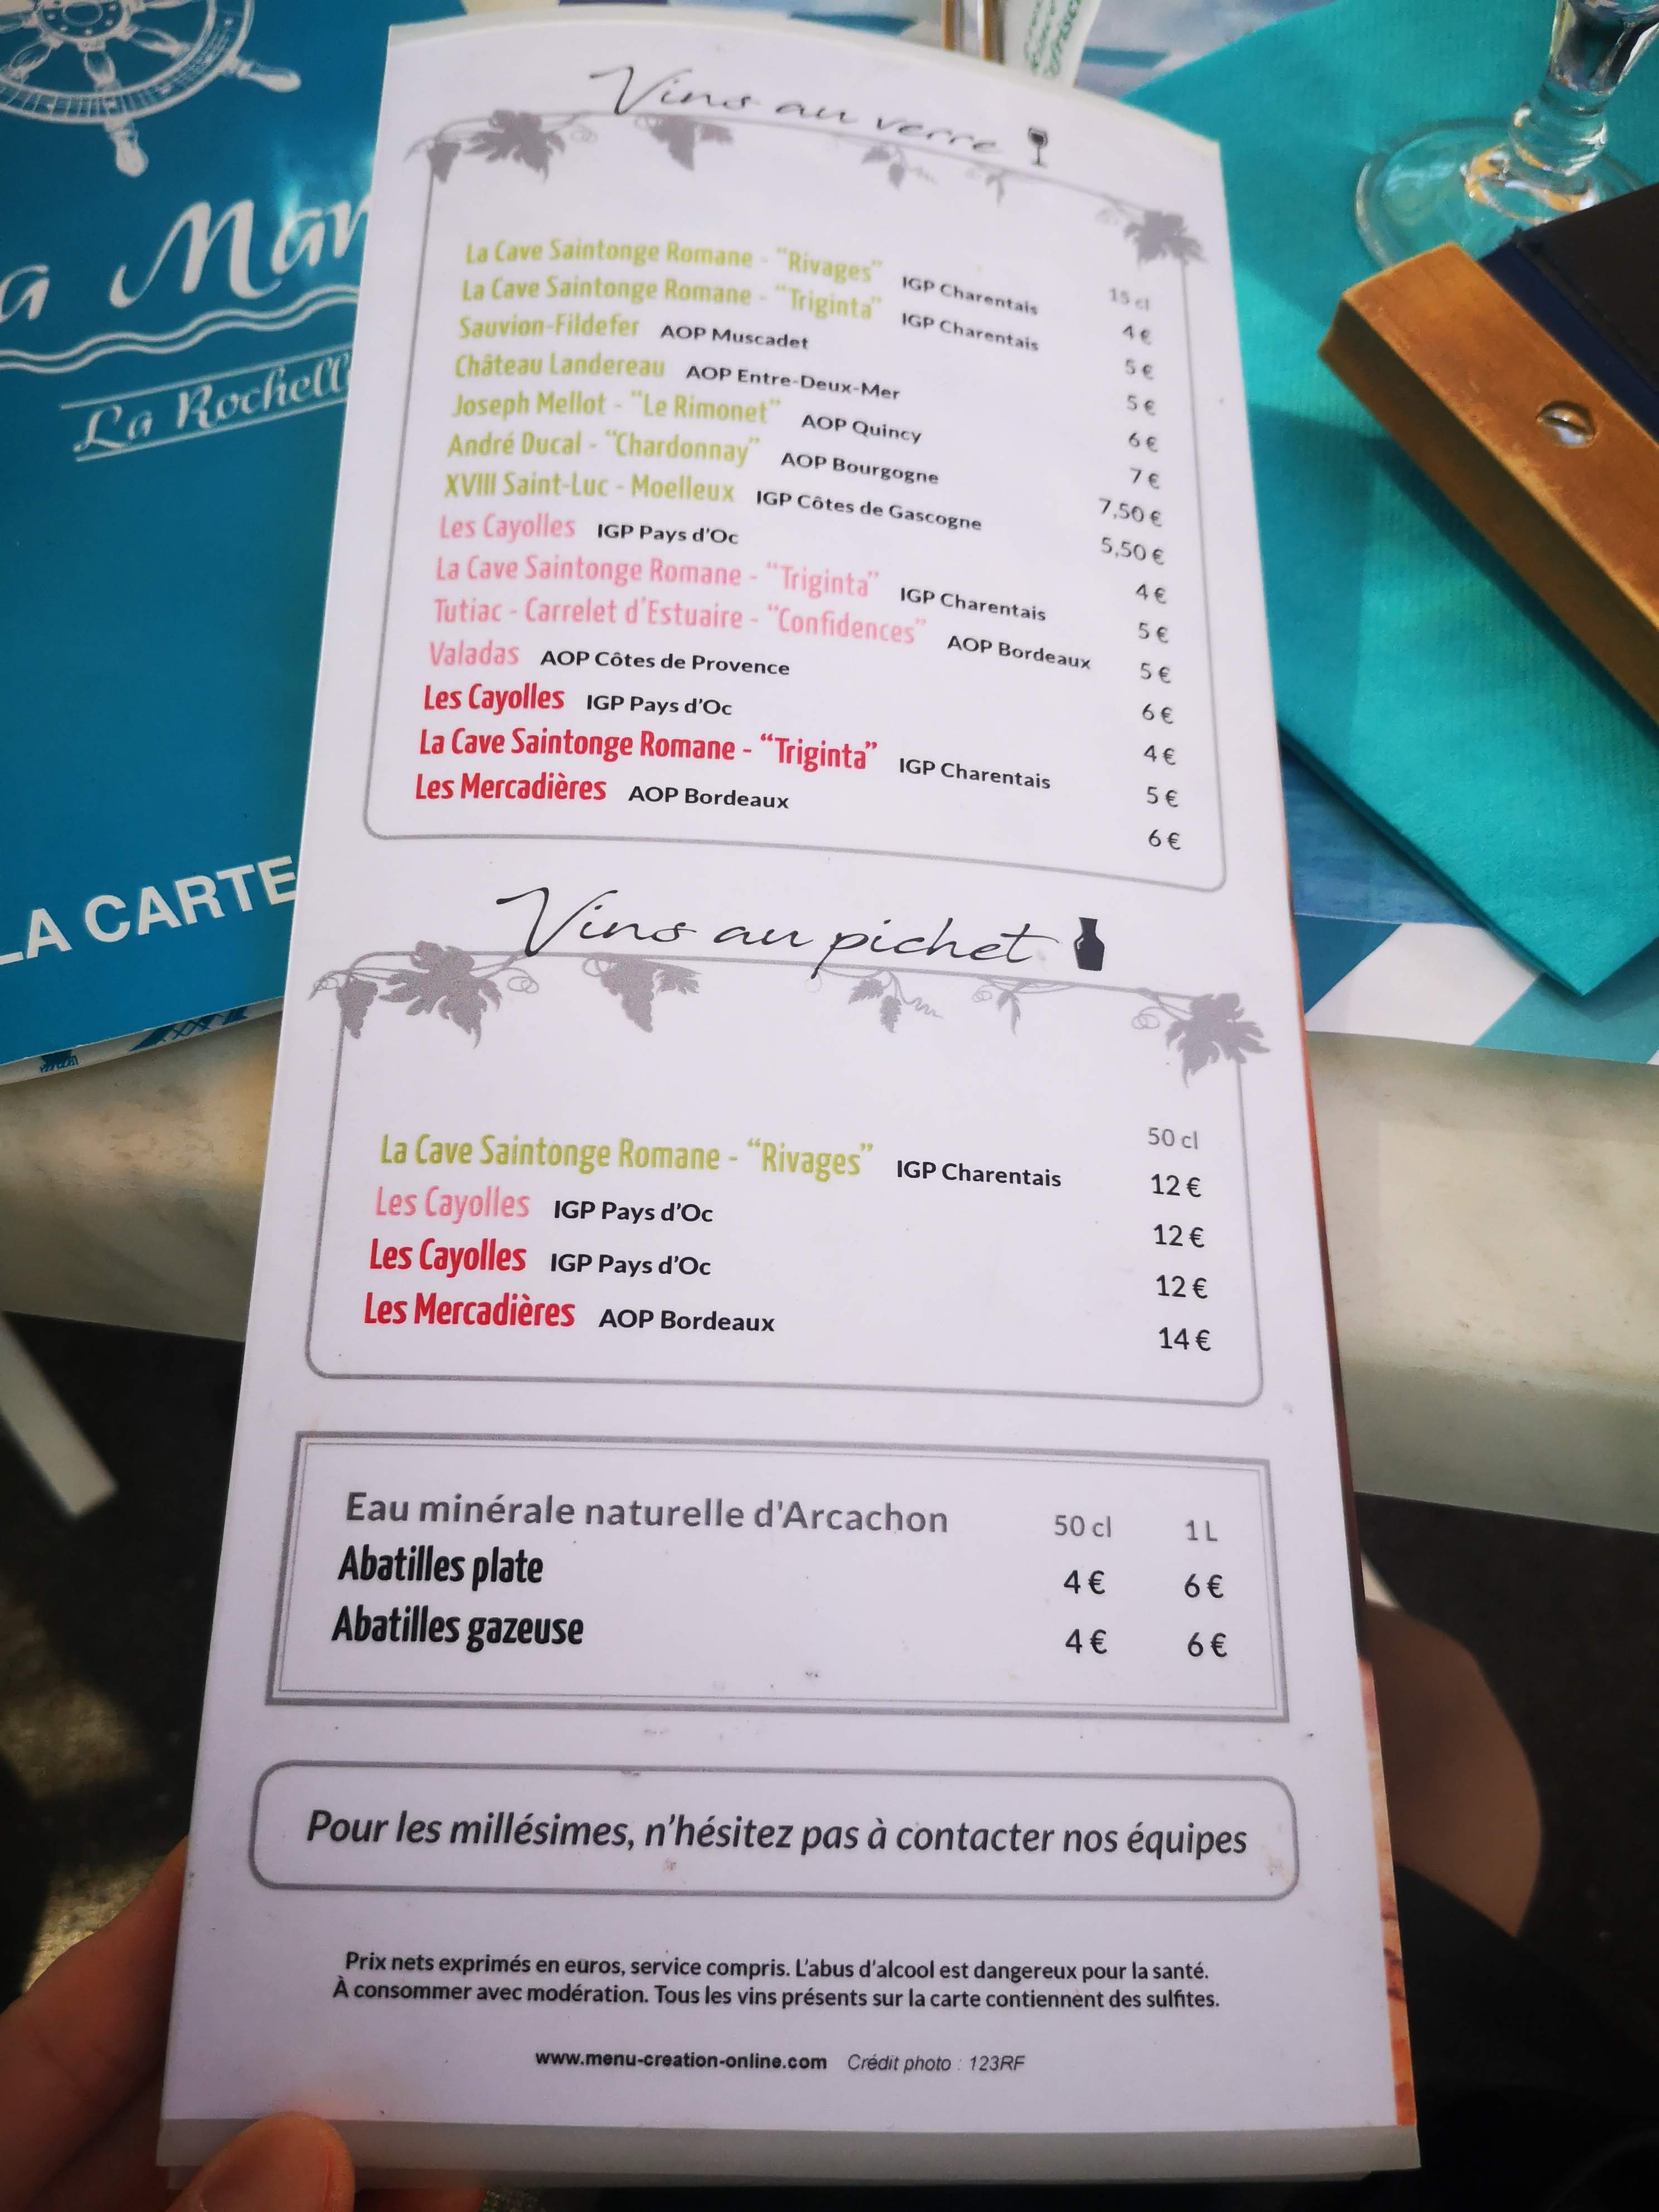 Vins au verre
15 cl
La Cave Saintonge Romane - "Rivages" IGP Charentais 4 €
La Cave Saintonge Romane - "Triginta" IGP Charentais 5 €
Sauvion-Fildefer AOP Muscadet 5 €
Château Landereau AOP Entre-Deux-Mer 6 €
Joseph Mellot - "Le Rimonet" AOP Quincy 7 €
André Ducal - "Chardonnay" AOP Bourgogne 7,50 €
XVIII Saint-Luc - Moelleux IGP Côtes de Gascogne 5,50 €
Les Cayolles IGP Pays d'Oc 4 €
La Cave Saintonge Romane - "Triginta" IGP Charentais 5 €
Tutiac - Carrelet d'Estuaire - "Confidences" AOP Bordeaux 5 €
Valadas AOP Côtes de Provence 6 €
Les Cayolles IGP Pays d'Oc 4 €
La Cave Saintonge Romane - "Triginta" IGP Charentais 5 €
Les Mercadières AOP Bordeaux 6 €
Vins au pichet
50 cl
La Cave Saintonge Romane - "Rivages" IGP Charentais 12 €
Les Cayolles IGP Pays d'Oc 12 €
Les Cayolles IGP Pays d'Oc 12 €
Les Mercadières AOP Bordeaux 14 €
Eau minérale naturelle d'Arcachon 50 cl 1 L
Abatilles plate 4 € 6 €
Abatilles gazeuse 4 € 6 €
Pour les millésimes, n'hésitez pas à contacter nos équipes
Prix nets exprimés en euros, service compris. L'abus d'alcool est dangereux pour la santé.
À consommer avec modération. Tous les vins présents sur la carte contiennent des sulfites.
www.menu-creation-online.com Crédit photo : 123RF
a Mar
La Rochell
LA CARTE